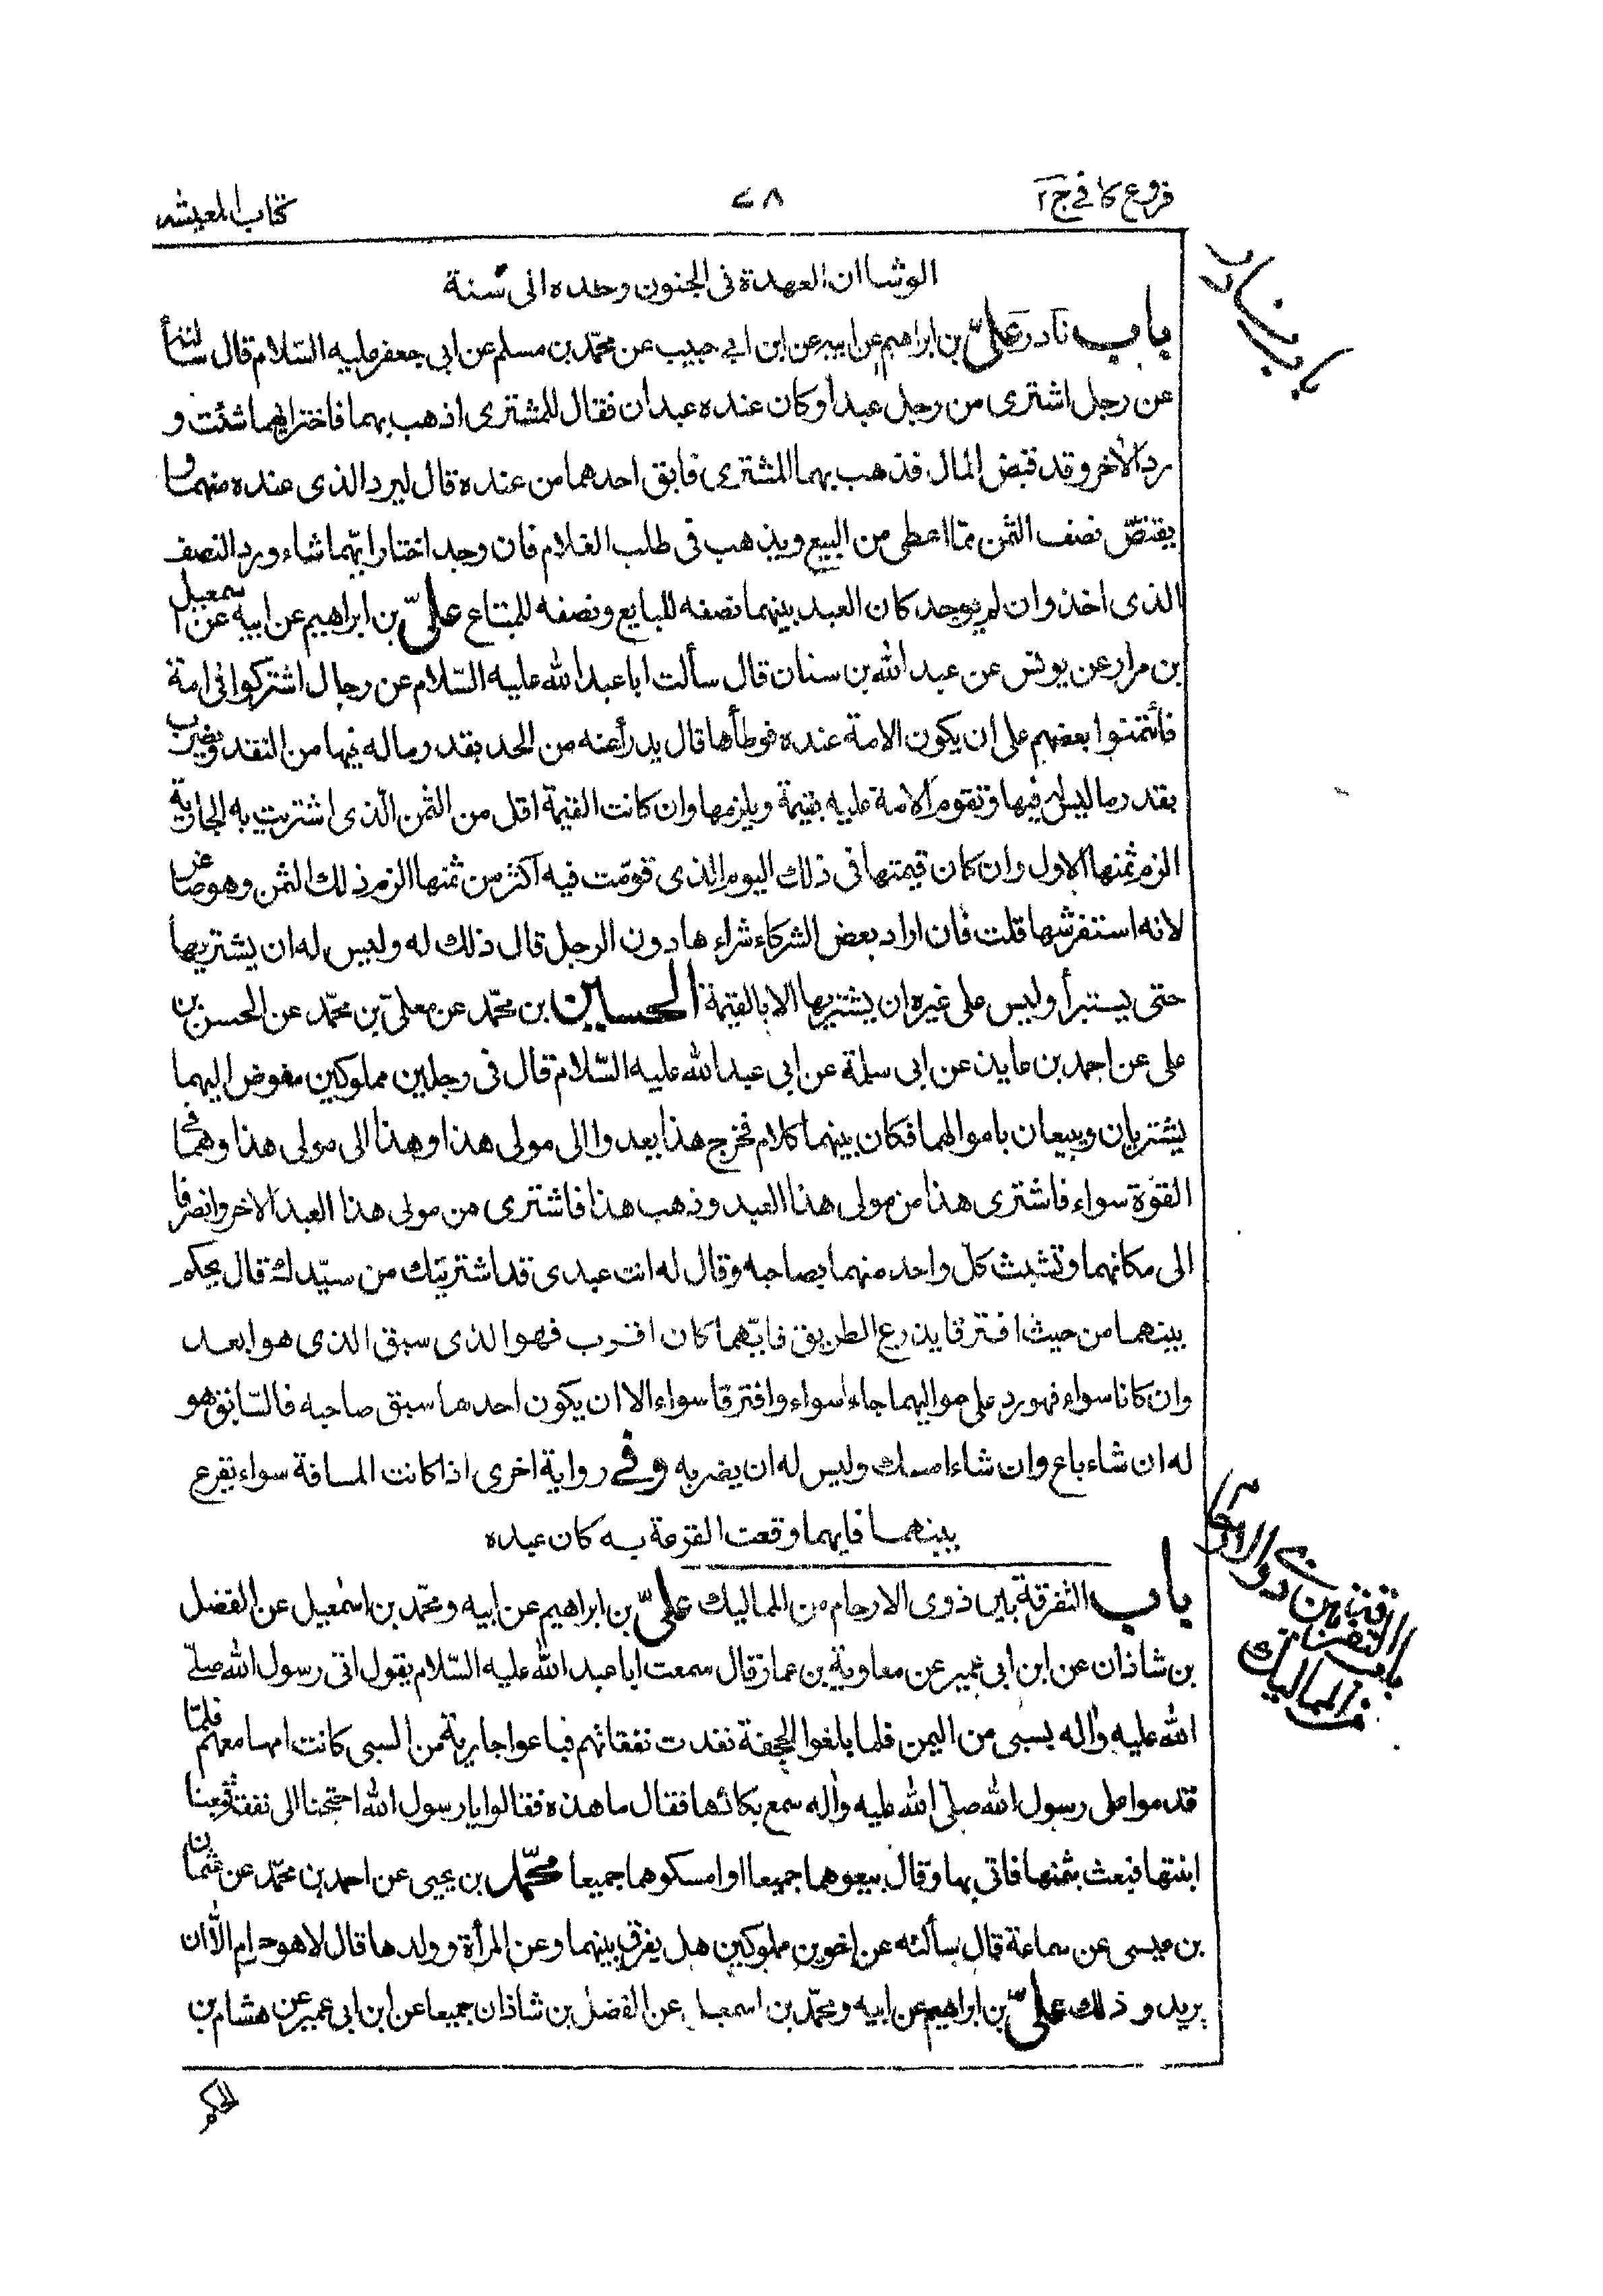 فروع كافے ج٢
٧٨
كتاب المعيشه
الوشا ان العهدة فى الجنون وحده الى سنة
باب نادر
باب نادر علىّ بن ابراهيم عن ابيه عن ابن ابى حبيب عن محمّد بن مسلم عن ابى جعفر عليه السّلام قال سألته
عن رجل اشترى من رجل عبدا وكان عنده عبدان فقال للمشترى اذهب بهما فاختر ايهما شئت و
رد الاخر وقد قبض المال فذهب بهما المشترى فابق احدهما من عنده قال ليرد الذى عنده منهما و
يقتضّ نصف الثمن ممّا اعطى من البيع ويذهب فى طلب الغلام فان وجد اختار ايّهما شاء ورد النصف
الذى اخذ وان لم يوجد كان العبد بينهما نصفه للبايع ونصفه للمبتاع علىّ بن ابراهيم عن ابيه عن اسمعيل
بن مرار عن يونس عن عبد الله بن سنان قال سألت ابا عبد الله عليه السّلام عن رجال اشتركوا فى امة
فأتمنوا بعضهم على ان يكون الامة عنده فوطأها قال يدرأ عنه من الحد بقدر ما له فيها من النقد ويضرب
بقدر ما ليس له فيها وتقوم الامة عليه بقيمة ويلزمها وان كانت القيمة اقل من الثمن الّذى اشتريت به الجارية
الزم ثمنها الاول وان كان قيمتها فى ذلك اليوم الذى قوّمت فيه اكثر من ثمنها الزم ذلك الثمن وهو صاغر
لانه استفرشها قلت فان اراد بعض الشركاء شراءها دون الرجل قال ذلك له وليس له ان يشتريها
حتى يستبرأ وليس على غيره ان يشتريها الا بالقيمة الحسين بن محمّد عن معلىّ بن محمّد عن الحسن بن
على عن احمد بن عايذ عن ابى سلمة عن ابى عبد الله عليه السّلام قال فى رجلين مملوكين مفوض اليهما
يشتريان ويبيعان باموالهما فكان بينهما كلام فخرج هذا يعدوا الى مولى هذا وهذا الى مولى هذا وهما فى
القوّة سواء فاشترى هذا من مولى هذا العبد وذهب هذا فاشترى من مولى هذا العبد الاخر وانصرفا
الى مكانهما وتشبث كلّ واحد منهما بصاحبه وقال له انت عبدى قد اشتريتك من سيّدك قال يحكم
بينهما من حيث افترقا يذرع الطريق فايّهما كان اقرب فهو الذى سبق الذى هو ابعد
وان كانا سواء فهو رد على مواليهما جاءا سواء وافترقا سواء الا ان يكون احدهما سبق صاحبه فالسّابق هو
له ان شاء باع وان شاء امسك وليس له ان يضربه وفے رواية اخرى اذا كانت المسافة سواء يقرع
بينهما فايهما وقعت القرعة به كان عبده
باب التفرقة بين ذوى الارحام من المماليك
باب التفرقة بين ذوى الارحام من المماليك علىّ بن ابراهيم عن ابيه ومحمّد بن اسمعيل عن الفضل
بن شاذان عن ابن ابى عمير عن معاوية بن عمار قال سمعت ابا عبد الله عليه السّلام يقول اتى رسول الله صلّى
الله عليه واله بسبى من اليمن فلما بلغوا الجحفة نفدت نفقاتهم فباعوا جارية من السبى كانت امها معهم فلمّا
قدموا على رسول الله صلّى الله عليه واله سمع بكائها فقال ما هذه فقالوا يا رسول الله احتجنا الى نفقة فبعنا
ابنتها فبعث بثمنها فاتى بها وقال بيعوهما جميعا او امسكوهما جميعا محمّد بن يحيى عن احمد بن محمّد عن عثمان
بن عيسى عن سماعة قال سألته عن اخوين مملوكين هل يفرق بينهما وعن المرأة وولدها قال لا هو حرام الّا ان
يريدو ذلك علىّ بن ابراهيم عن ابيه ومحمّد بن اسمعيل عن الفضل بن شاذان جميعا عن ابن ابى عمير عن هشام بن
الحكم